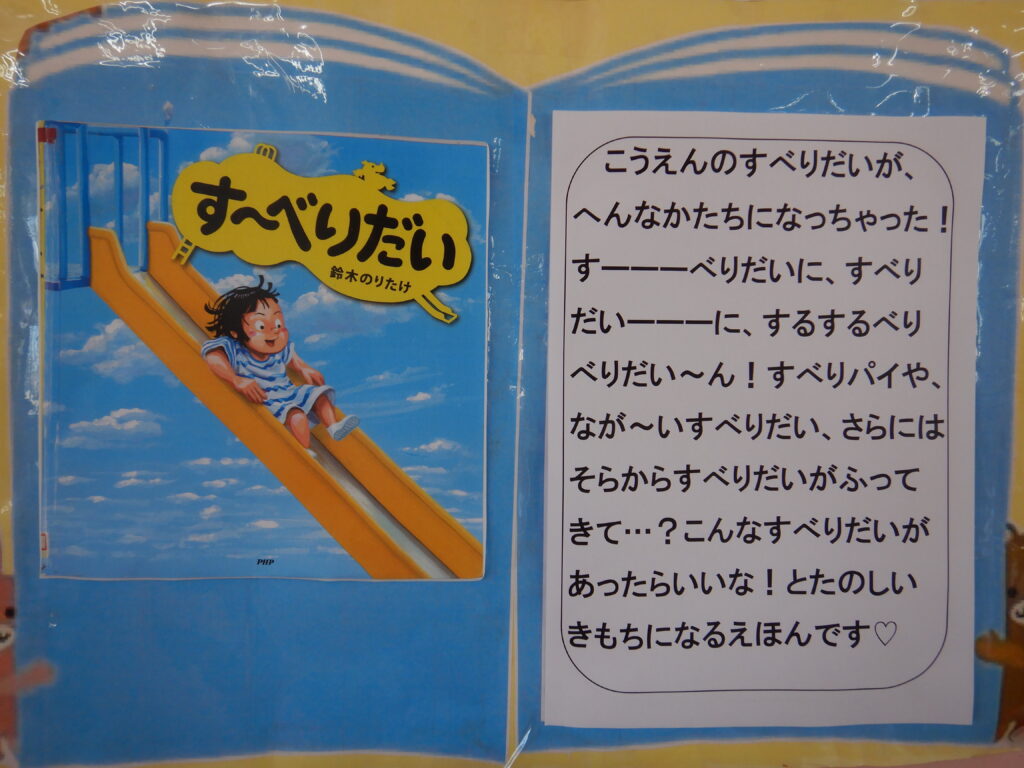 す〜べりだい
鈴木のりたけ
PHP
こうえんのすべりだいが、
へんなかたちになっちゃった！
すーーーべりだいに、すべり
だいーーーに、するするべり
べりだい〜ん！すべりパイや、
なが〜いすべりだい、さらには
そらからすべりだいがふって
きて…？こんなすべりだいが
あったらいいな！とたのしい
きもちになるえほんです♡